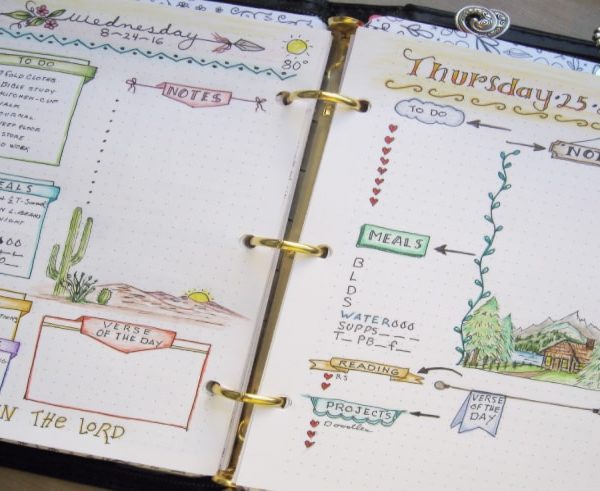 Wednesday
8-24-16
80°
TO DO
FOLD CLOTHES
BIBLE STUDY
KITCHEN-CUP
WALK
JOURNAL
SWEEP FLOOR
STORE
WORK
NOTES
MEALS
VERSE
OF THE DAY
IN THE LORD
Thursday·25·
TO DO
NO
MEALS
B
L
D
S
WATER
SUPPS____
T_PB_f_
READING
RS
PROJECTS
Doodles
VERSE
OF THE
DAY